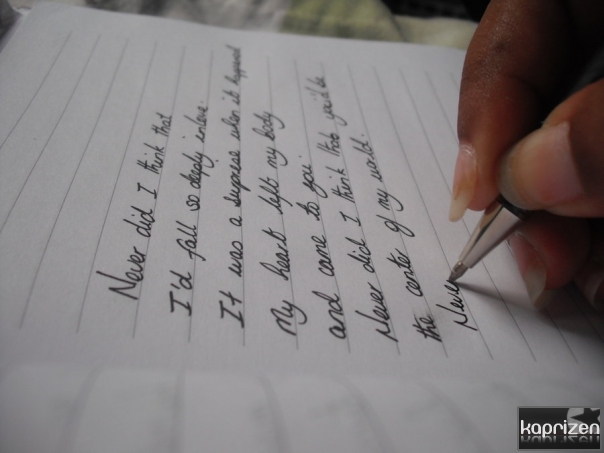 Never did I think that
I'd fall so deeply inlove.
It was a suprise when it happened
My heart left my body
and came to you.
Never did I think that you'd be
the center of my world.
Never
kaprizen